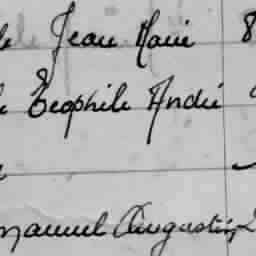 Jean Marie 8
Teophile André
manuel Augustin